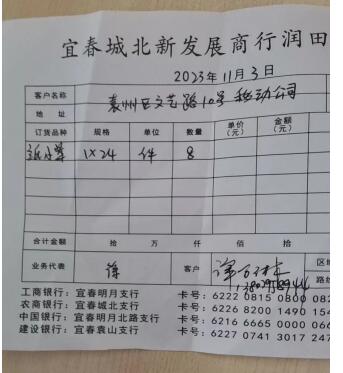 宜春城北新发展商行润田
2023年11月3日
客户名称
地址 袁州区文艺路10号移动公司
订货品种 规格 单位 数量 单价(元) 金额(元)
1×24 件 8
合计金额 拾 万 仟 佰 拾
业务代表 徐 客户 区 路
工商银行：宜春明月支行 卡号：6222 0815 0800 082
农商银行：宜春城北支行 卡号：6226 8200 1490 154
中国银行：宜春明月北路支行 卡号：6216 6665 0000 066
建设银行：宜春袁山支行 卡号：6227 0741 3017 247